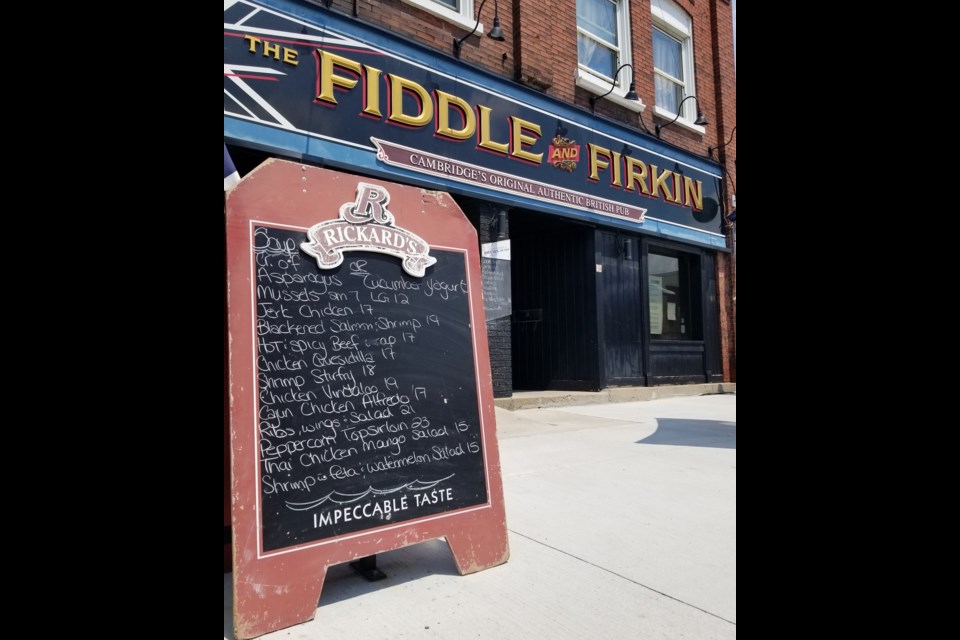 THE FIDDLE AND FIRKIN
CAMBRIDGE'S ORIGINAL AUTHENTIC BRITISH PUB
R
RICKARD'S
Soup
Cr. of
Asparagus or Cucumber Yogurt
Mussels sm 7 LG 12
Jerk Chicken 17
Blackened Salmon; Shrimp 19
Hot; spicy Beef 17
Chicken Quesidilla 17
Shrimp Stirfry 18
Chicken Vindaloo 19
Cajun Chicken Alfredo 17
Ribs, wings; Salad 21
Peppercorn Topsirloin 23
Thai Chicken Mango Salad 15
Shrimp feta; watermelon Salad 15
IMPECCABLE TASTE